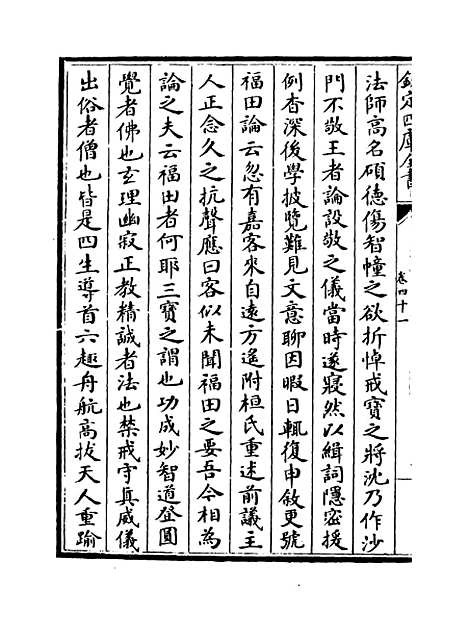 欽定四庫全書
卷四十一
法師高名碩德傷智幢之欲折悼戒寶之將沈乃作沙
門不敬王者論設敬之儀當時遂寢然以緝詞隱密援
例杳深後學披覽難見文意聊因暇日輒復申敘更號
福田論云忽有嘉客來自遠方遥附桓氏重述前議主
人正念久之抗聲應曰客似未聞福田之要吾今相為
論之夫云福田者何耶三寶之謂也功成妙智道登圓
覺者佛也玄理幽寂正教精誠者法也禁戒守真威儀
出俗者僧也皆是四生導首六趣舟航高拔天人重踰